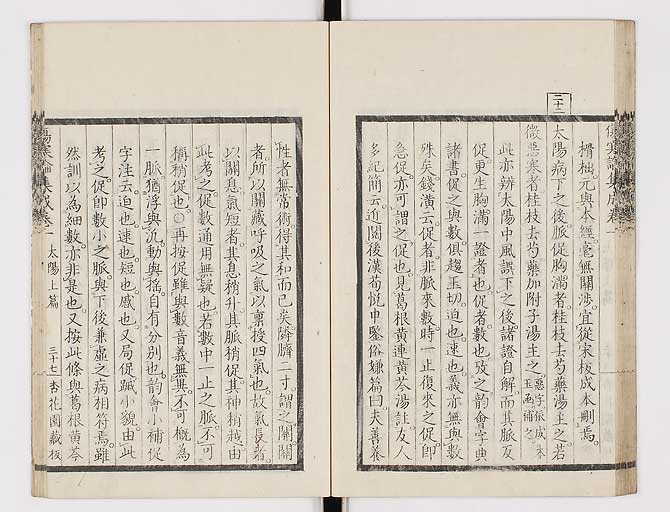 二十二
傷寒論集成卷一
榾拙元與本經毫無關涉宜從宋板成本刪焉
太陽病下之後脈促胸滿者桂枝去芍藥湯主之若
微惡寒者桂枝去芍藥加附子湯主之惡字依成本玉函補之
此亦辨太陽中風誤下之後諸證自解而其脈反
促更生胸滿一證者也促者數也攷之韻會字典
諸書促之與數俱趨玉切迫也速也義亦無與數
殊矣錢潢云促者非脈來數時一止復來之促即
急促亦可謂之促也見葛根黃連黃芩湯註友人
多紀簡云近閱後漢荀悅申鑒俗嫌篇曰夫善養
性者無常術得其和而已矣隣臍二寸謂之關關
者所以關藏呼吸之氣以稟授四氣也故氣長者
以關息氣短者其息稍升其脈稍促其神稍越由
此考之促數通用無疑也若數中一止之脈不可
稱稍促也○再按促雖與數音義無異不可概為
一脈猶浮與汎動與搖自有分別也韻會小補促
字注云迫也速也短也感也又局促踧小貌由此
考之促即數小之脈與下後兼虛之病相符焉雖
然訓以為細數亦非是也又按此條與葛根黃芩
傷寒論集成卷一
太陽上篇
三十七
杏花園藏板